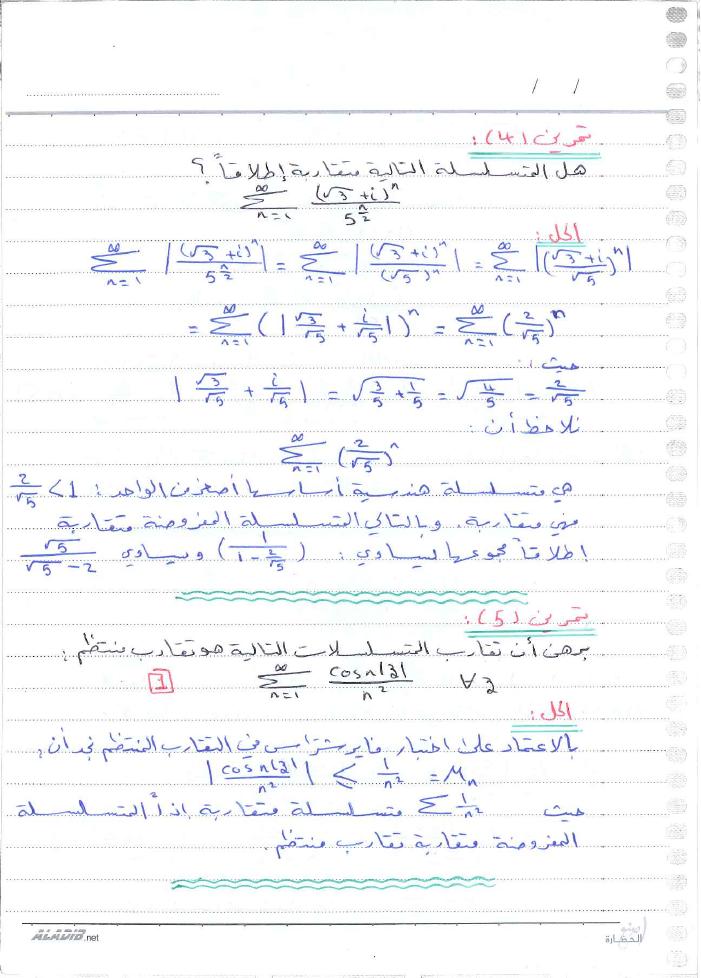 / /
تمرين (4):
هل المتسلسلة التالية متقاربة إطلاقاً؟
∑_{n=1}^{∞} (√3 + i)^n / 5^{n/2}
الحل:
∑_{n=1}^{∞} |(√3 + i)^n / 5^{n/2}| = ∑_{n=1}^{∞} |(√3 + i)^n / (√5)^n| = ∑_{n=1}^{∞} |((√3 + i)/√5)^n|
= ∑_{n=1}^{∞} (|√3/√5 + i/√5|)^n = ∑_{n=1}^{∞} (2/√5)^n
حيث:
|√3/√5 + i/√5| = √(3/5 + 1/5) = √(4/5) = 2/√5
نلاحظ أن:
∑_{n=1}^{∞} (2/√5)^n
هي متسلسلة هندسية أساسها أصغر من الواحد: 2/√5 < 1
فهي متقاربة. وبالتالي المتسلسلة المفروضة متقاربة
إطلاقاً مجموعها يساوي: (1/(1 - 2/√5)) ويساوي √5/(√5 - 2)
تمرين (5):
برهن أن تقارب المتسلسلات التالية هو تقارب منتظم:
1 ∑_{n=1}^{∞} cos n|z| / n² ∀ z
الحل:
بالاعتماد على اختبار فايرشتراس في التقارب المنتظم نجد أن:
|cos n|z| / n²| ≤ 1/n² = M_n
حيث ∑ 1/n² متسلسلة متقاربة إذاً المتسلسلة
المفروضة متقاربة تقارب منتظم.
ALADIB.net
الحضارة